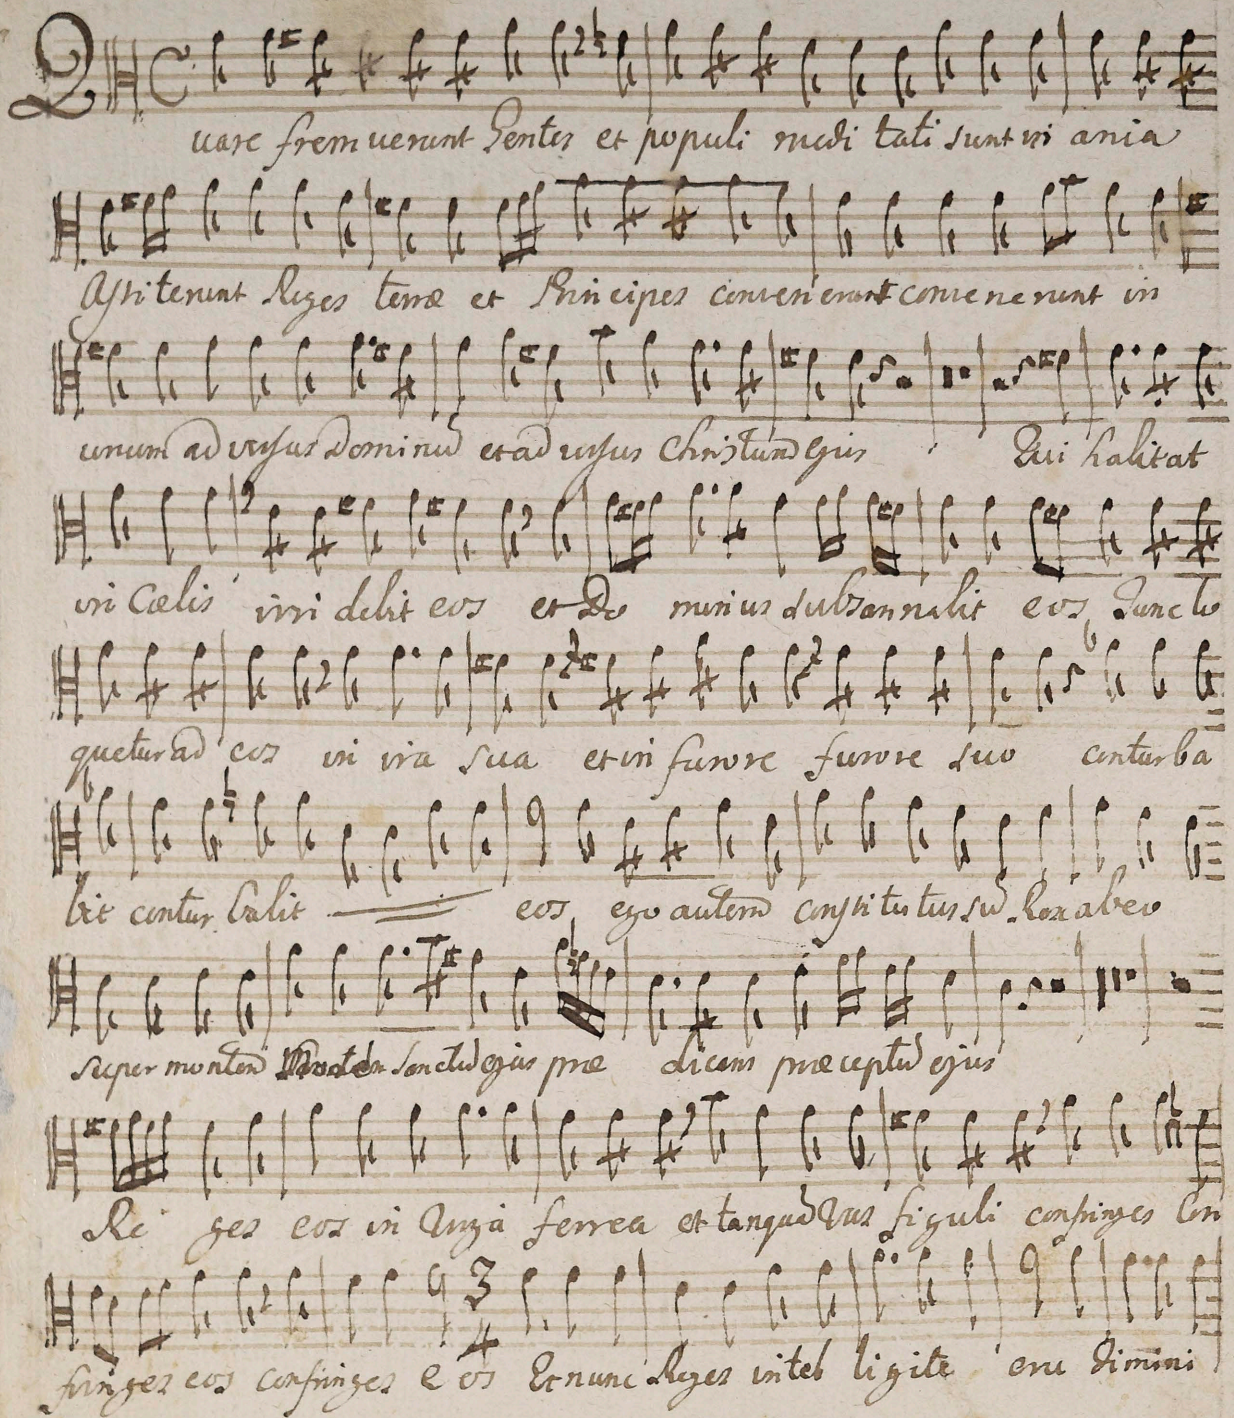 Quare fremuerunt Gentes et populi medi tati sunt in ania
Astiterunt Reges terræ et Principes convenerunt convenerunt in
unum adversus Dominũ et adversus Christum Ejus Qui habitat
in Cælis irri debit eos et Do minus subsannabit eos Tunc lo
quetur ad eos in ira sua et in furore furore suo conturba
bit contur babit eos ego autem constitutus sũ Rex ab eo
super montem sanctũ ejus præ dicans præceptũ ejus
Re ges eos in Virga ferrea et tanquã Vas figuli confringes Con
fringes eos confringes eos Et nunc Reges intel ligite eru dimini